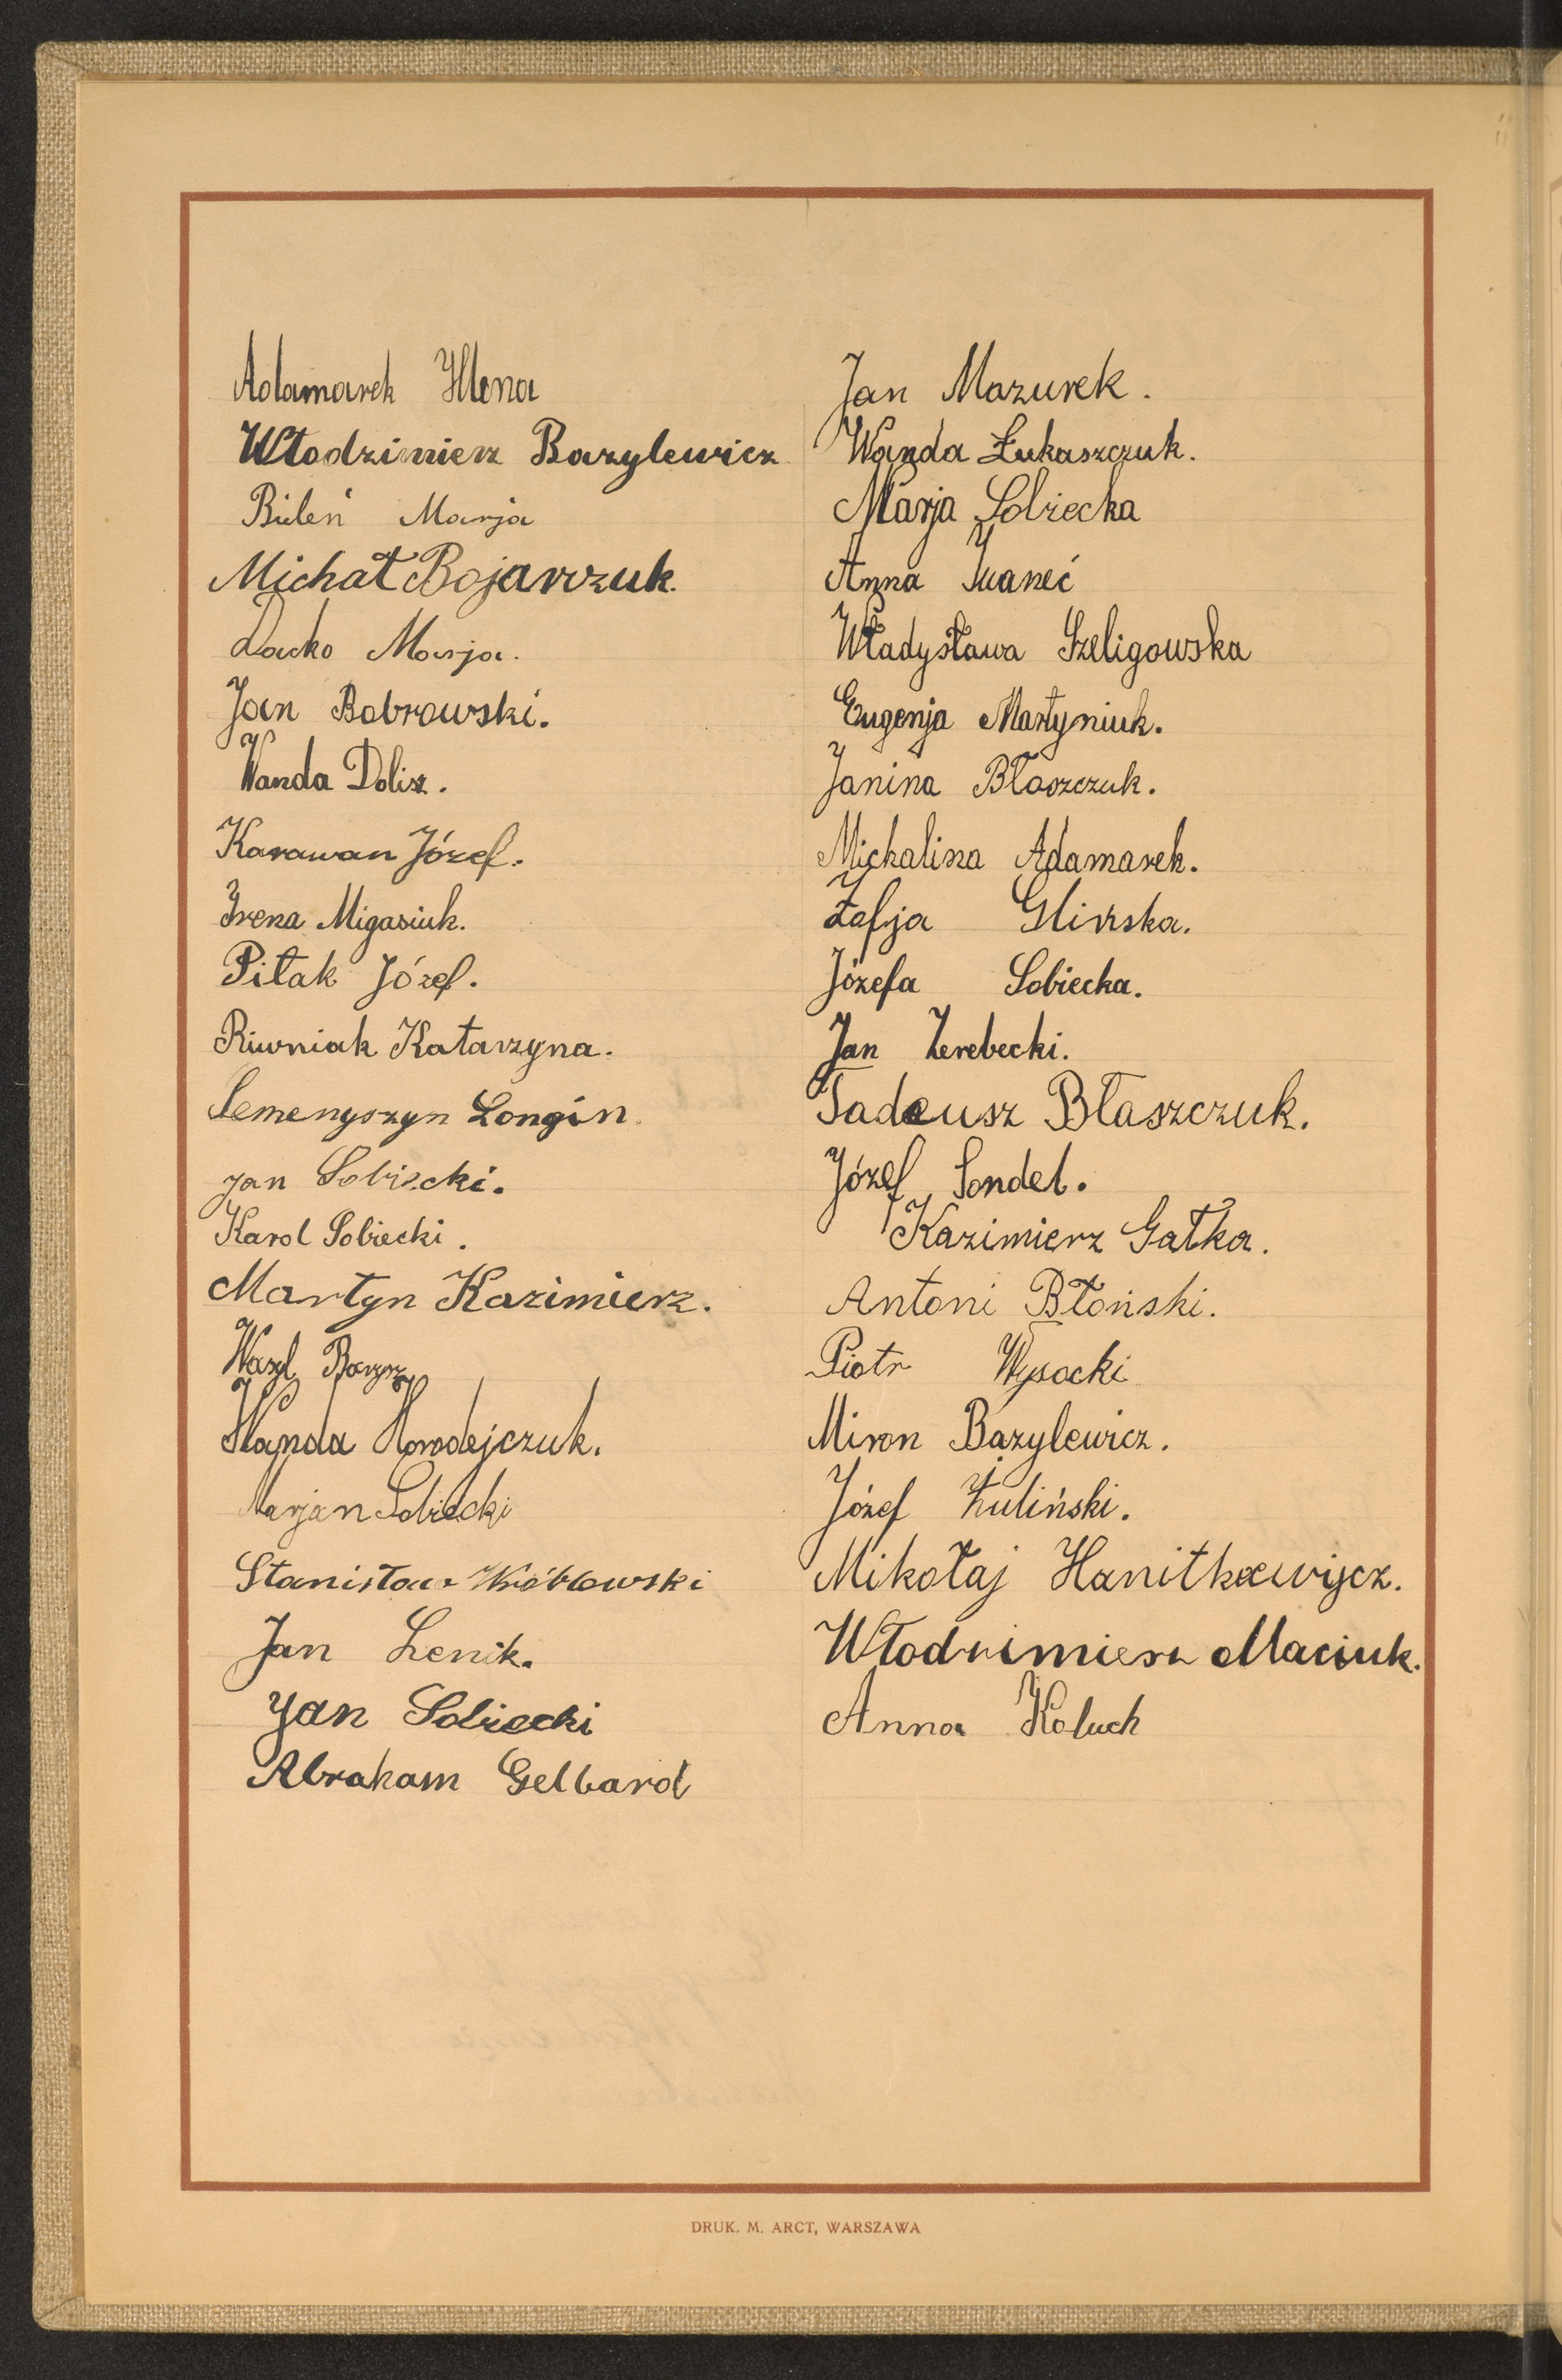 Adamarek Hlena
Włodzimierz Bazylewicz
Bileń Marja
Michał Bojarczuk.
Dacko Marja.
Jan Bobrowski.
Wanda Dolisz.
Karawan Józef.
Irena Migasiuk.
Pitak Józef.
Riwniak Katarzyna.
Semenyszyn Longin.
Jan Sobiecki.
Karol Sobiecki.
Martyn Kazimierz.
Wasyl
Wanda Horodejczuk.
Marjan Sobiecki
Stanisław Wróblowski
Jan Lenik.
Jan Sobiecki
Abraham Gelbard
Jan Mazurek.
Wanda Łukaszczuk.
Marja Sobiecka
Anna Iwaneć
Władysława Szeligowska
Eugenja Martyniuk.
Janina Błaszczuk.
Michalina Adamarek.
Zofja Glinska.
Józefa Sobiecka.
Jan Zerebecki.
Tadeusz Błaszczuk.
Józef Sondel.
Kazimierz Gałka.
Antoni Błoński.
Piotr Wysocki
Miron Bazylewicz.
Józef Żuliński.
Mikołaj Hanitkewycz.
Włodzimierz Maciuk.
Anna Koluch
DRUK. M. ARCT, WARSZAWA